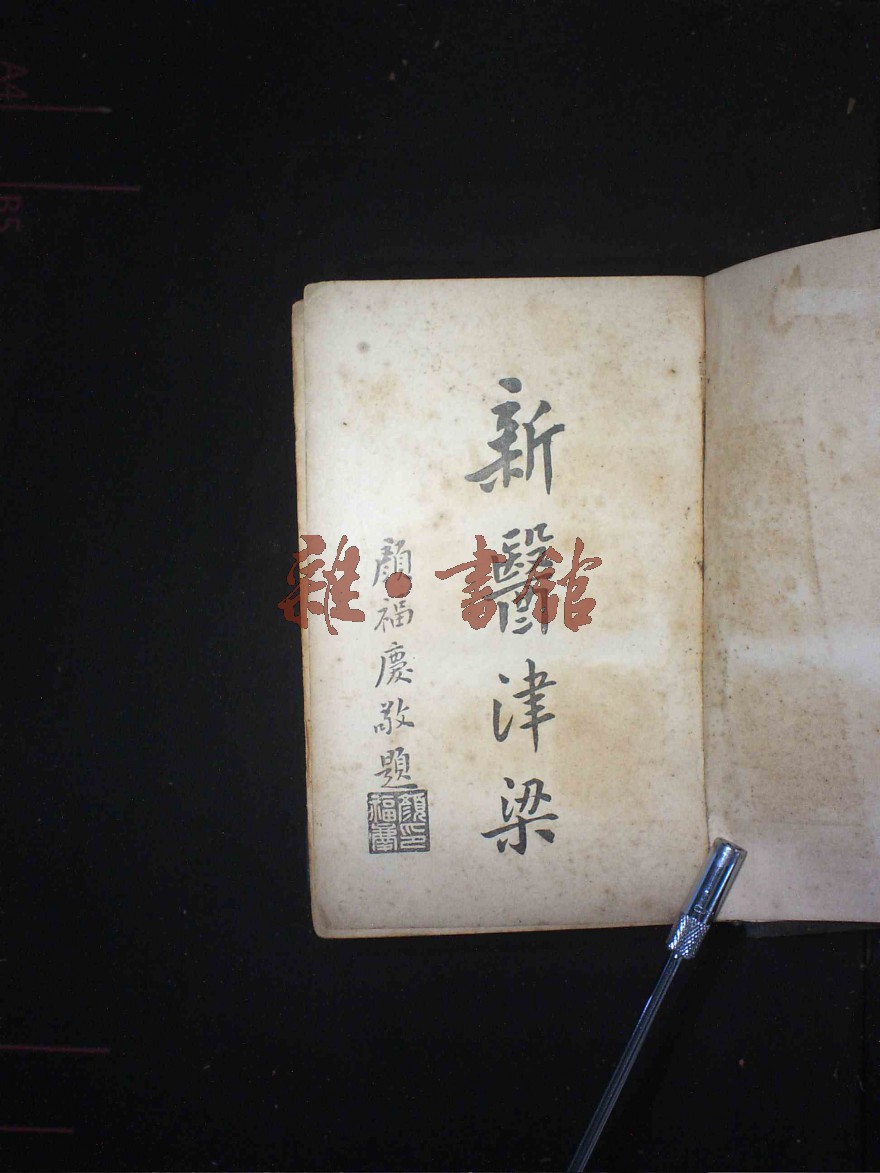 新醫津梁
顏福慶敬題
顏印福慶
雜·書館
A4
B5